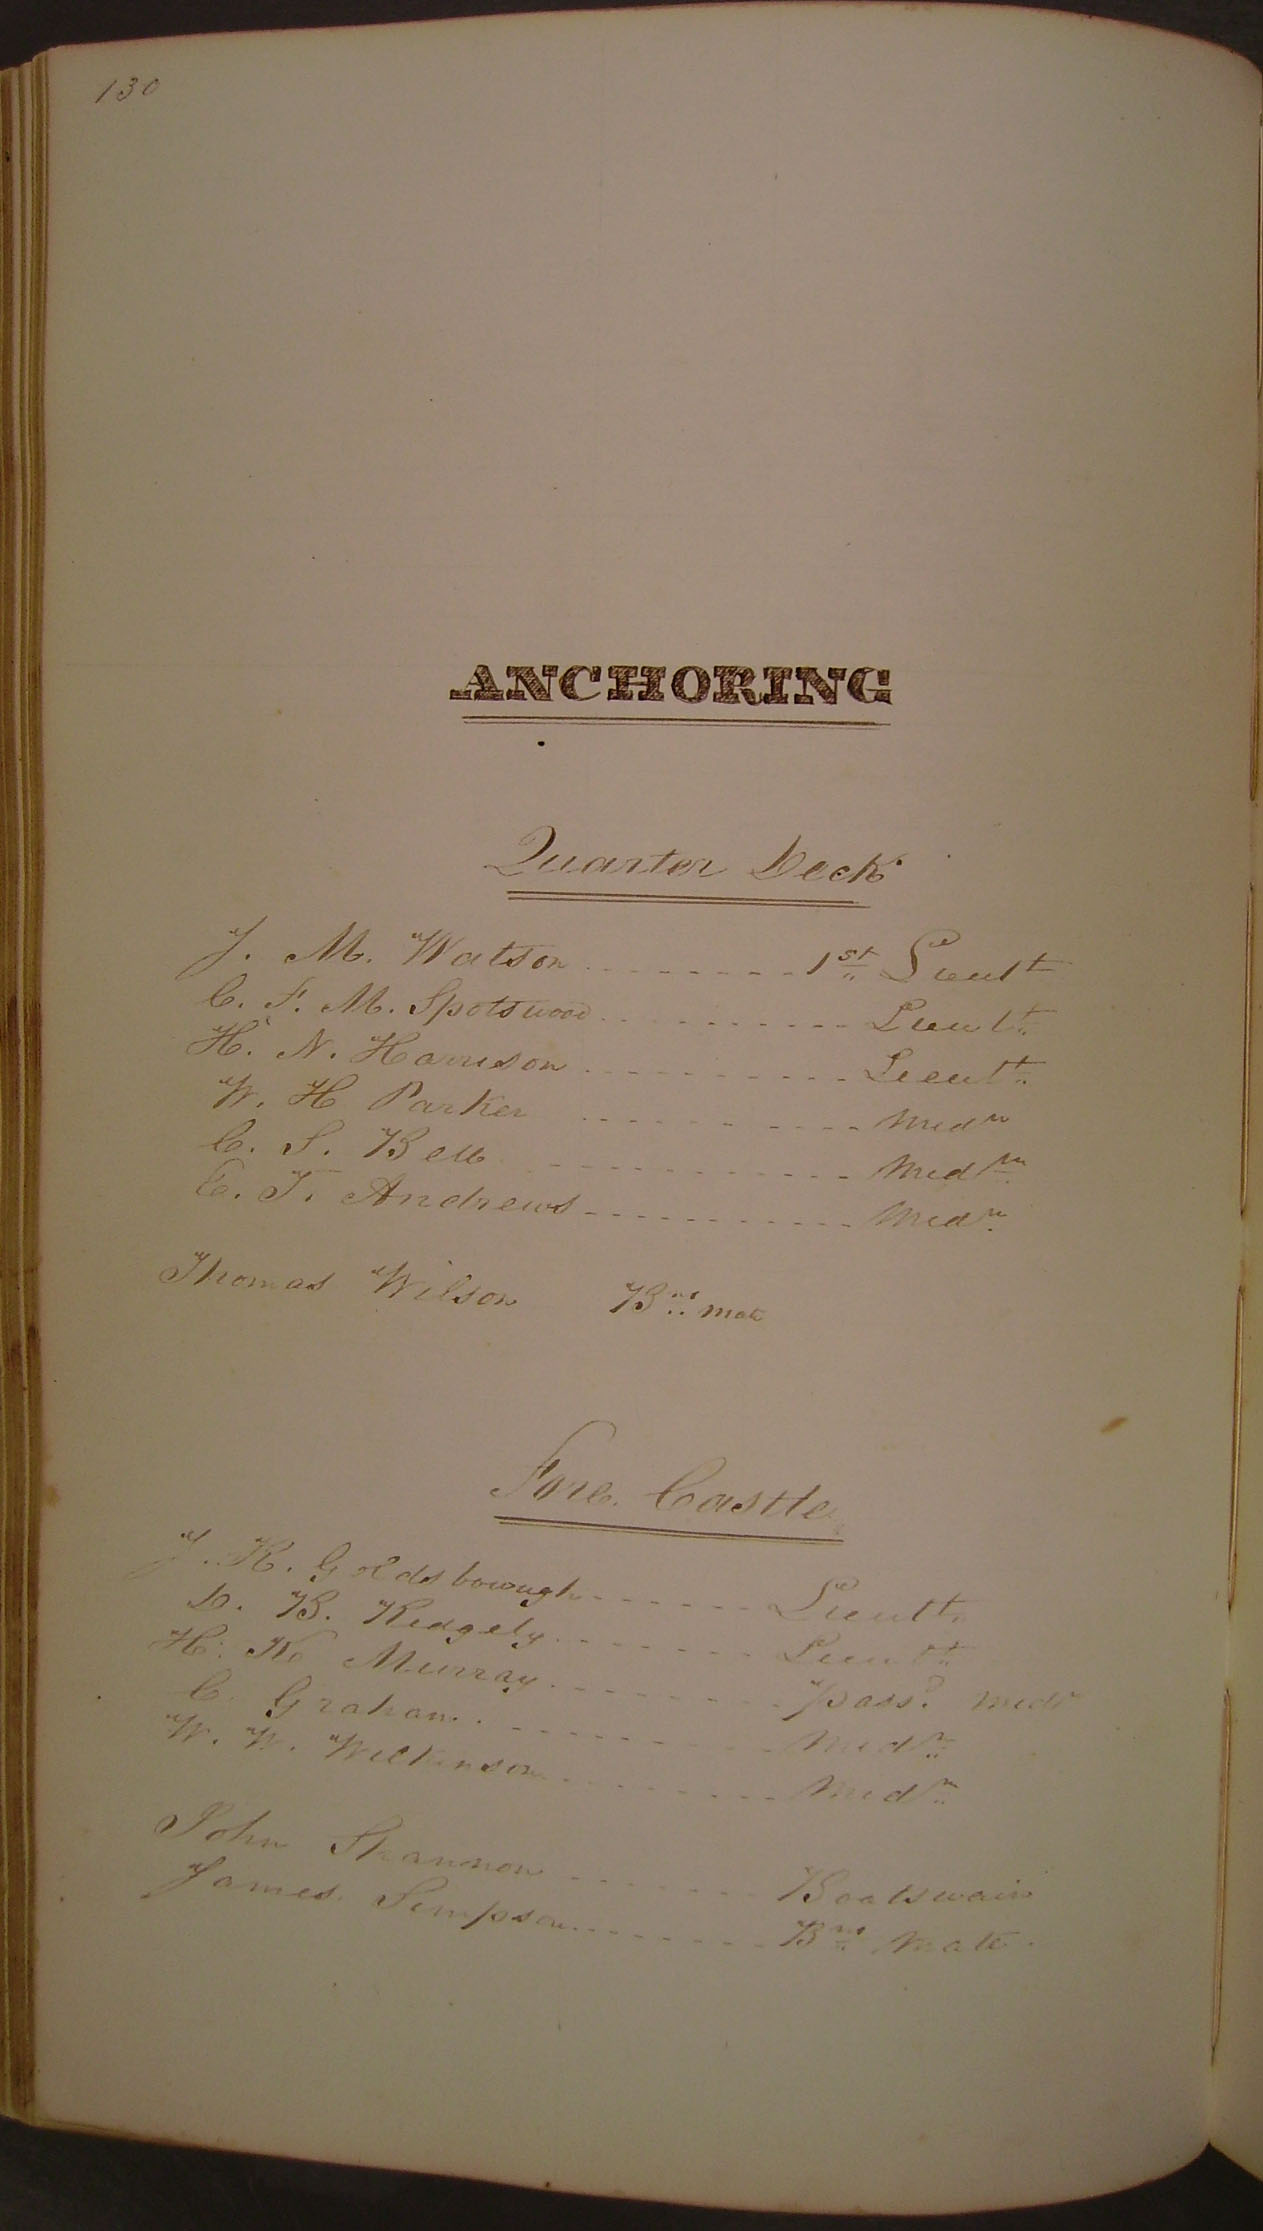 130
ANCHORING
Quarter Deck
J. M. Watson - - - - - - - - - 1st Lieut
C. F. M. Spotswood - - - - - - - - - - Lieut
H. N. Harrison - - - - - - - - - - - Lieut
W. H Parker - - - - - - - - - - Midn
C. S. Bell - - - - - - - - - - - - Midn
E. T. Andrews - - - - - - - - - - - Midn
Thomas Wilson Bns mate
Fore Castle
J. R. Goldsborough - - - - - - Lieutt
D. B. Ridgely - - - - - - - - Lieut
H. K Murray - - - - - - - - - passd mid
C. Graham - - - - - - - - - - Midn
W. W. Wilkinson - - - - - - - - - Midn
John Shannon - - - - - - - Boatswain
James Simpson - - - - - - - Bns Mate